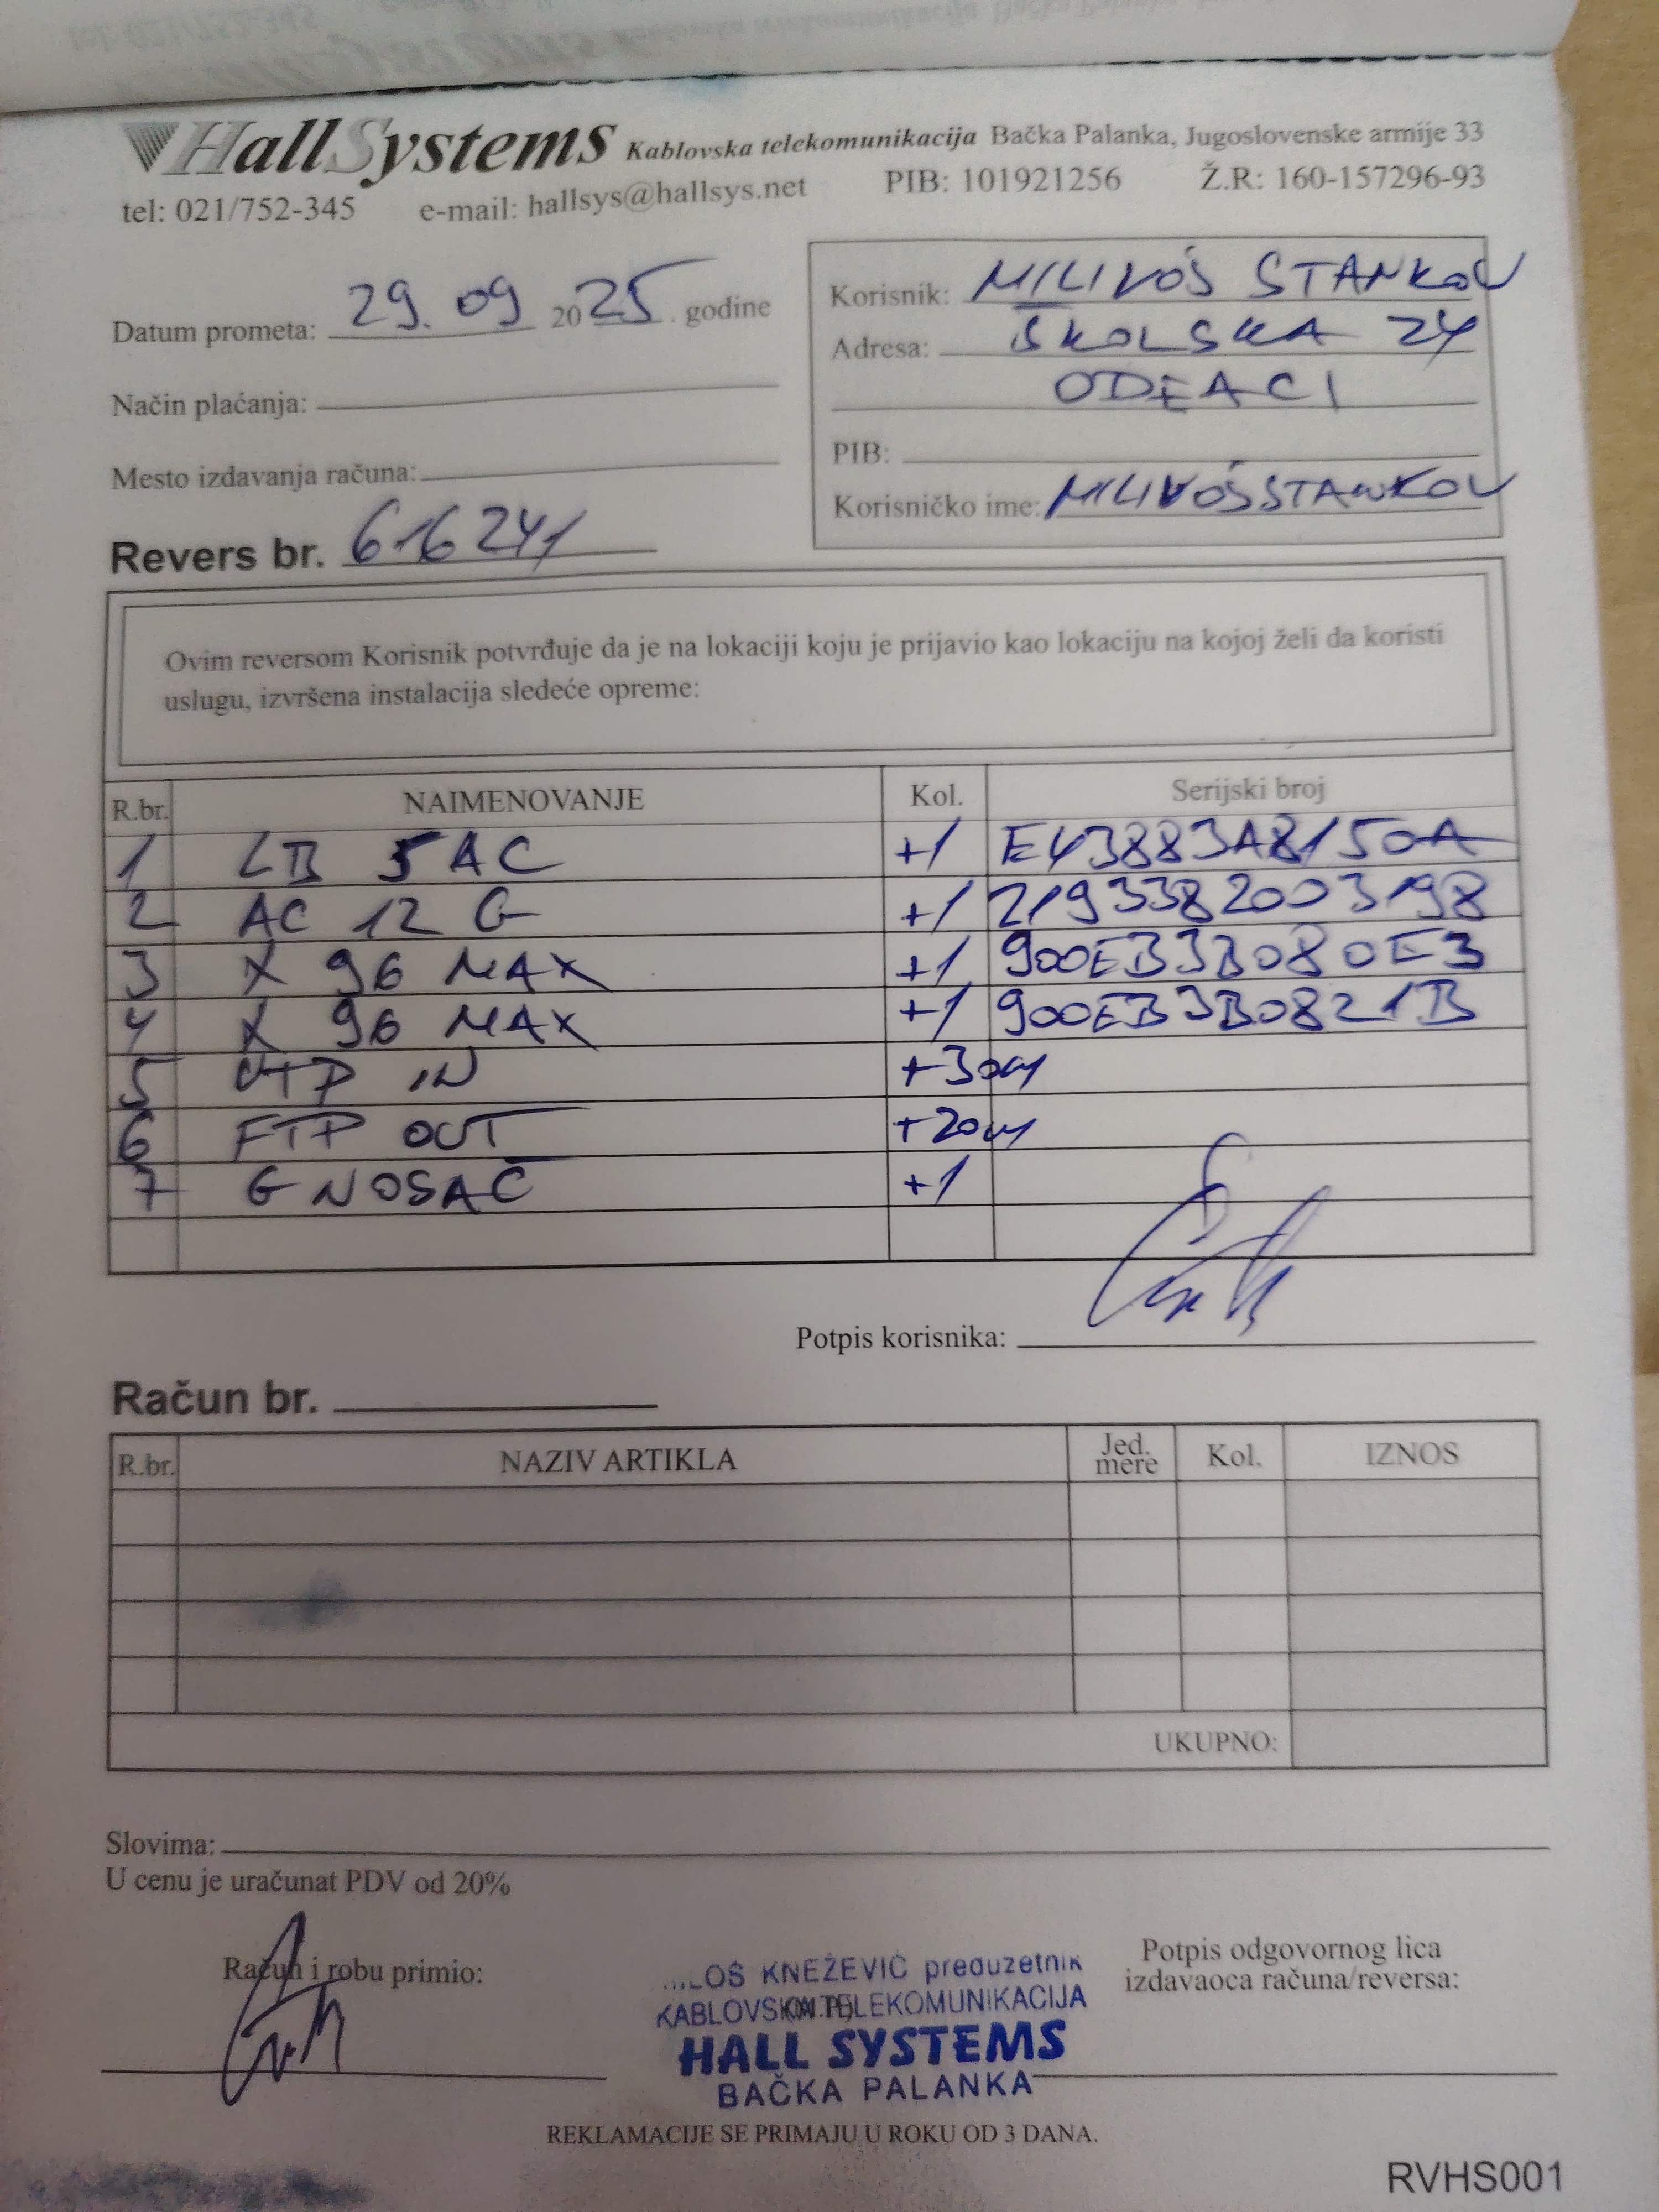 HallSystems Kablovska telekomunikacija Bačka Palanka, Jugoslovenske armije 33
tel: 021/752-345 e-mail: hallsys@hallsys.net PIB: 101921256 Ž.R: 160-157296-93
Datum prometa: 29.09 2025. godine
Način plaćanja:
Mesto izdavanja računa:
Revers br. 616241
Korisnik: MILIVOŠ STANKOV
Adresa: ŠKOLSKA 24
ODŽACI
PIB:
Korisničko ime: MILIVOŠSTANKOV
Ovim reversom Korisnik potvrđuje da je na lokaciji koju je prijavio kao lokaciju na kojoj želi da koristi
uslugu, izvršena instalacija sledeće opreme:
R.br. NAIMENOVANJE Kol. Serijski broj
1 LB 5AC +1 E43883A8150A
2 AC 12 G +1 2193382003198
3 X 96 MAX +1 900EB3B080E3
4 X 96 MAX +1 900EB3B0821B
5 UTP IN +30m
6 FTP OUT +20m
7 G NOSAČ +1
Potpis korisnika:
Račun br.
R.br. NAZIV ARTIKLA Jed. mere Kol. IZNOS
UKUPNO:
Slovima:
U cenu je uračunat PDV od 20%
Račun i robu primio:
KNEŽEVIĆ preduzetnik
TELEKOMUNIKACIJA
HALL SYSTEMS
BAČKA PALANKA
Potpis odgovornog lica
izdavaoca računa/reversa:
REKLAMACIJE SE PRIMAJU U ROKU OD 3 DANA.
RVHS001